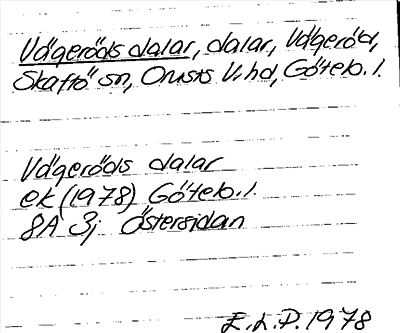 Vägeröds dalar, dalar, Vägeröd,
Skaftö sn, Orusts V. hd, Göteb. l.
Vägeröds dalar
ek (1978) Göteb. l.
8A 3j Östersidan
E.L.P. 1978